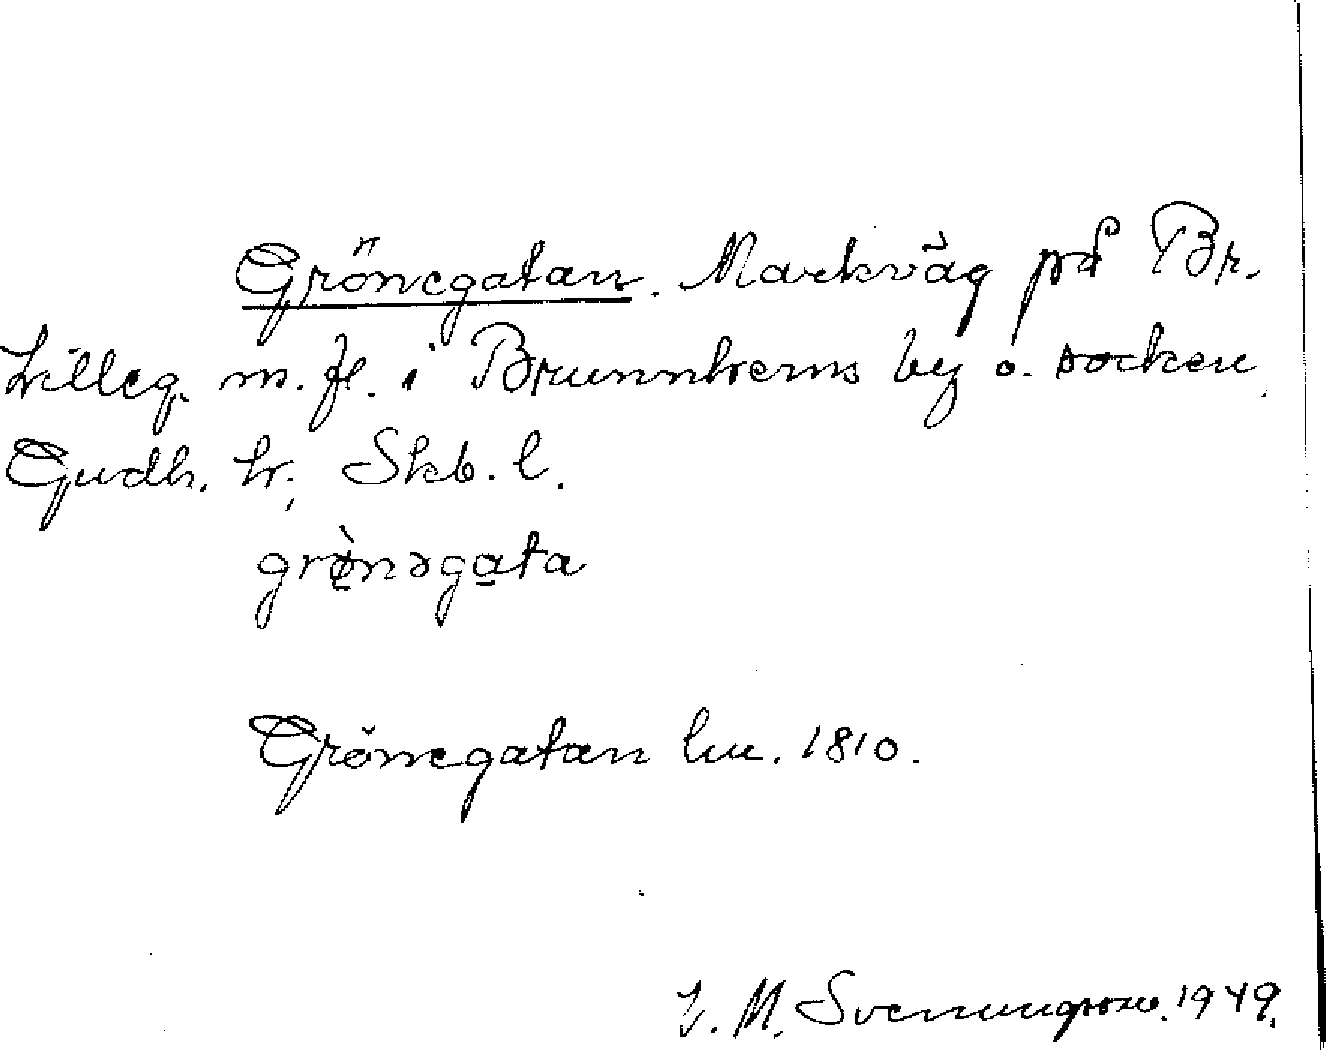 Grönegatan. Markväg på Br.
Lilleg. m. fl. i Brunnhems by o. socken.
Gudh. hr, Skb. l.
grø̀nəga̲ta
Grönegatan lm. 1810.
J. M. Svenungsson. 1949.